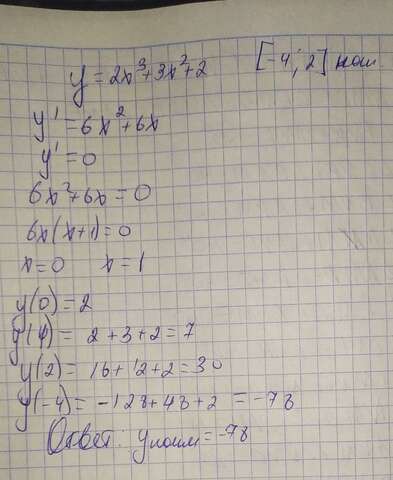 y = 2x³+3x²+2 [-4; 2] наим
y' = 6x²+6x
y' = 0
6x²+6x = 0
6x(x+1) = 0
x=0 x=1
y(0)=2
y(1)= 2+3+2=7
y(2)= 16+12+2=30
y(-4)= -128+48+2 = -78
Ответ: yнаим = -78